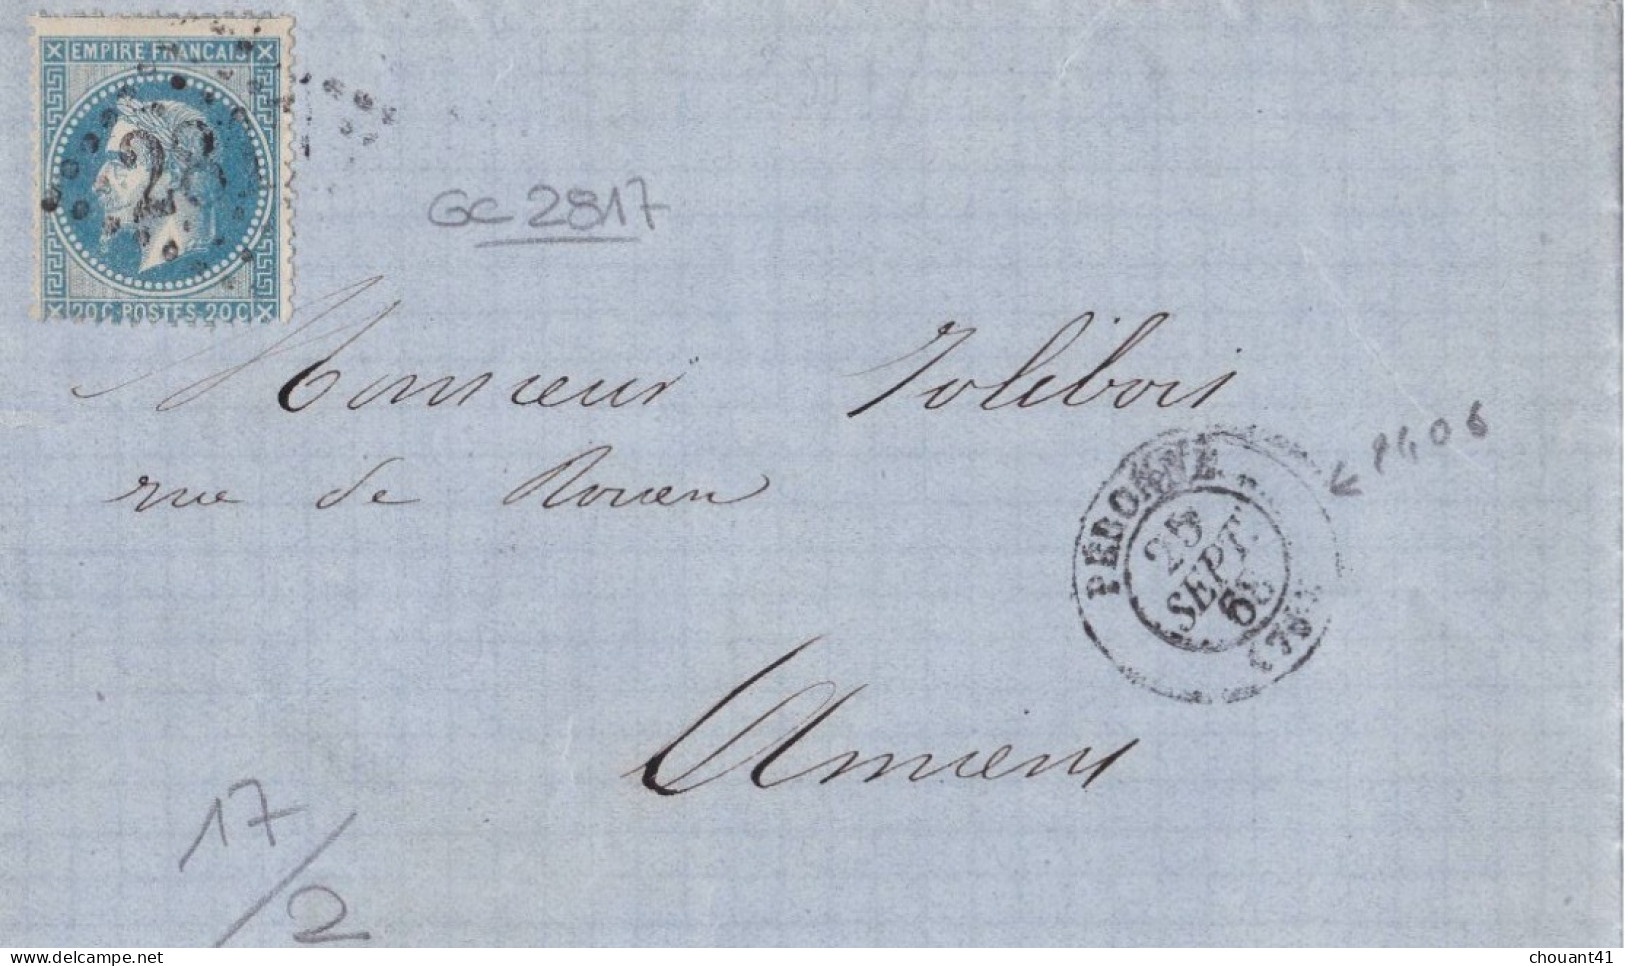 EMPIRE FRANCAIS
28
20 C · POSTES · 20 C
GC 2817
Monsieur Jolibois
rue de Rouen
Amiens
PÉRONNE
25
SEPT.
68
17/2
www.delcampe.net
chouant41